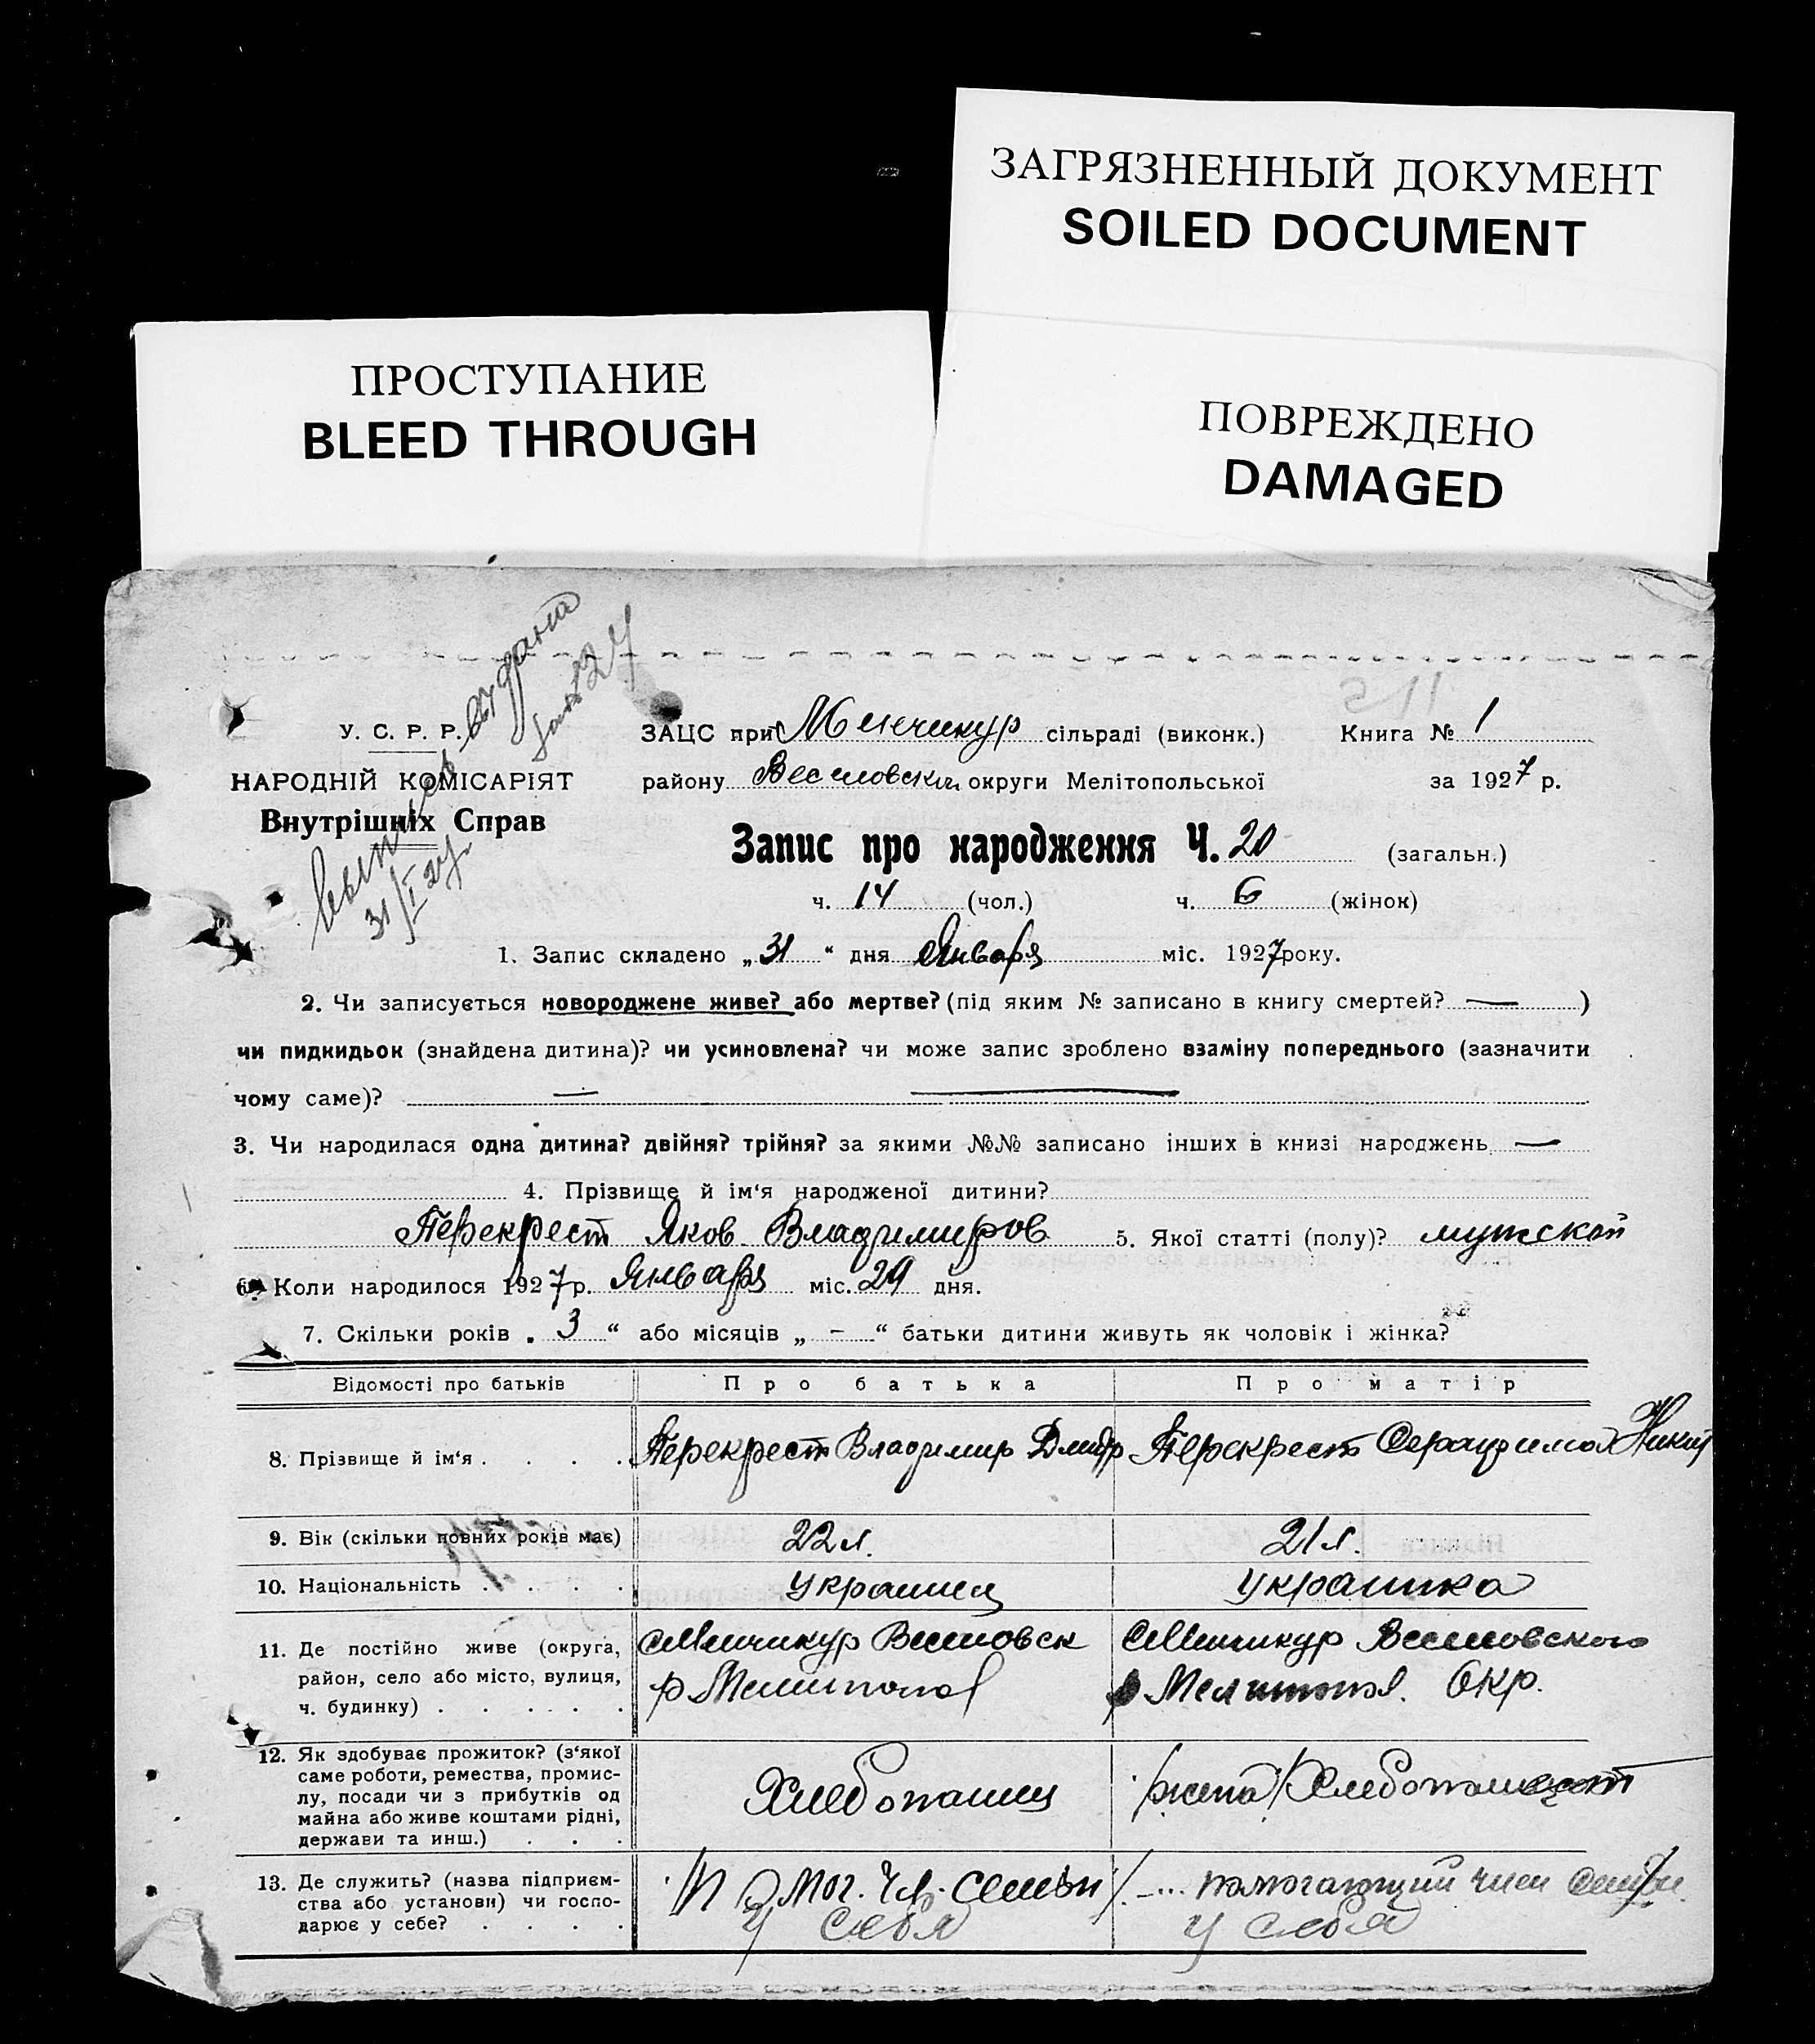 ЗАГРЯЗНЕННЫЙ ДОКУМЕНТ
SOILED DOCUMENT
ПРОСТУПАНИЕ
BLEED THROUGH
ПОВРЕЖДЕНО
DAMAGED
выдана
У. С. Р. Р.
НАРОДНІЙ КОМІСАРІЯТ
Внутрішніх Справ
31/I 27
ЗАЦС при Менчикур сільраді (виконк.) Книга № 1
району Веселовски округи Мелітопольської за 1927 р.
Запис про народження Ч. 20 (загальн.)
ч. 14 (чол.) ч. 6 (жінок)
1. Запис складено „31“ дня Января міс. 1927 року.
2. Чи записується новороджене живе? або мертве? (під яким № записано в книгу смертей? — )
чи пидкидьок (знайдена дитина)? чи усиновлена? чи може запис зроблено взаміну попереднього (зазначити
чому саме)? — —
3. Чи народилася одна дитина? двійня? трійня? за якими №№ записано інших в книзі народжень —
4. Прізвище й ім‘я народженої дитини?
Перекрест Яков Владимиров 5. Якої статті (полу)? мужской
6. Коли народилося 1927 р. Января міс. 29 дня.
7. Скільки років „ 3 “ або місяців „ - “ батьки дитини живуть як чоловік і жінка?
Відомості про батьків Про батька Про матір
8. Прізвище й ім‘я . . . . Перекрест Владимир Дмитр Перекрест Серафима Никит
9. Вік (скільки повних років має) 22 л. 21 л.
10. Національність . . . . Украинец Украинка
11. Де постійно живе (округа, с Менчикур Веселовск с Менчикур Веселовского
район, село або місто, вулиця, р Мелитопол р Мелитопол. Окр.
ч. будинку) . . . . .
12. Як здобуває прожиток? (з‘якої
саме роботи, ремества, промис-
лу, посади чи з прибутків од Хлебопашец (жена) Хлебопашест
майна або живе коштами рідні,
держави та инш.) . . .
13. Де служить? (назва підприєм- помог. чл. семьи помогающий член семьи
ства або установи) чи госпо- У себя У себя
дарює у себе? . . . .